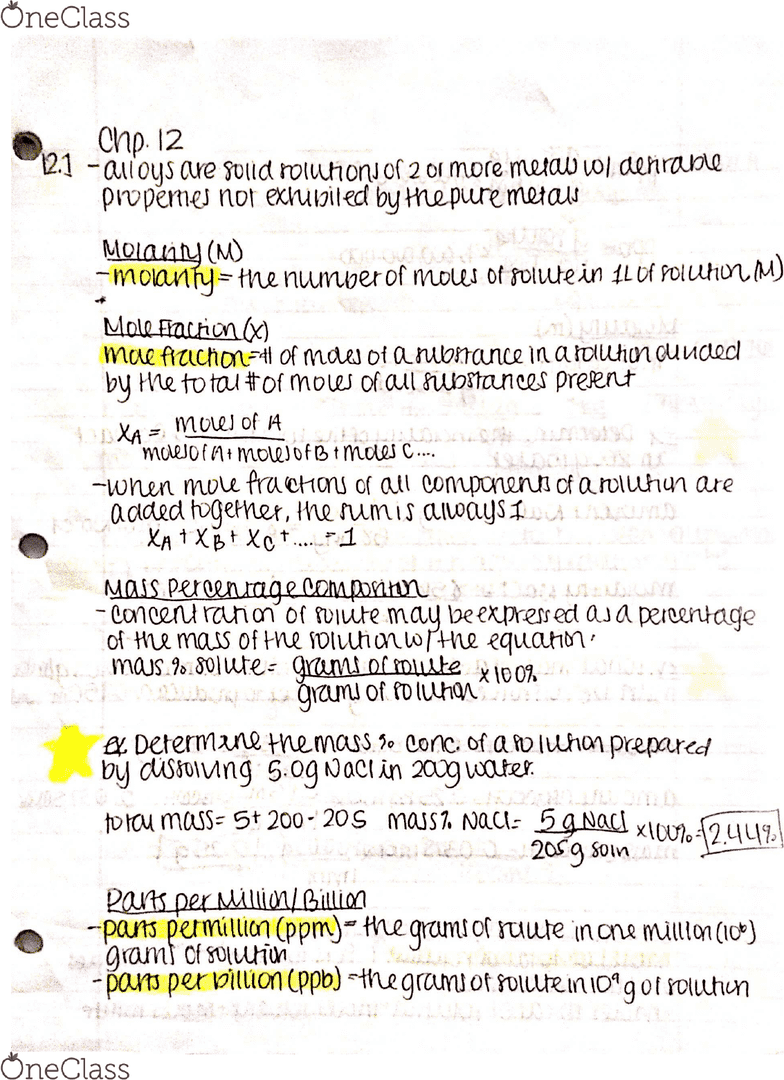 OneClass
Chp. 12
12.1 - alloys are solid solutions of 2 or more metals w/ desirable
properties not exhibited by the pure metals
Molarity (M)
- molarity = the number of moles of solute in 1L of solution (M)
*
Mole Fraction (X)
mole fraction = # of moles of a substance in a solution divided
by the total # of moles of all substances present
XA = moles of A
moles of A + moles of B + moles C ....
- when mole fractions of all components of a solution are
added together, the sum is always 1
XA + XB + XC + ..... = 1
Mass Percentage Composition
- concentration of solute may be expressed as a percentage
of the mass of the solution w/ the equation:
mass % solute = grams of solute x 100%
grams of solution
ex Determine the mass % conc. of a solution prepared
by dissolving 5.0g NaCl in 200g water.
total mass = 5 + 200 = 205 mass % NaCl = 5 g NaCl x 100% = 2.44%
205 g soln
Parts per Million/Billion
- parts per million (ppm) = the grams of solute in one million (10⁶)
grams of solution
- parts per billion (ppb) = the grams of solute in 10⁹ g of solution
OneClass